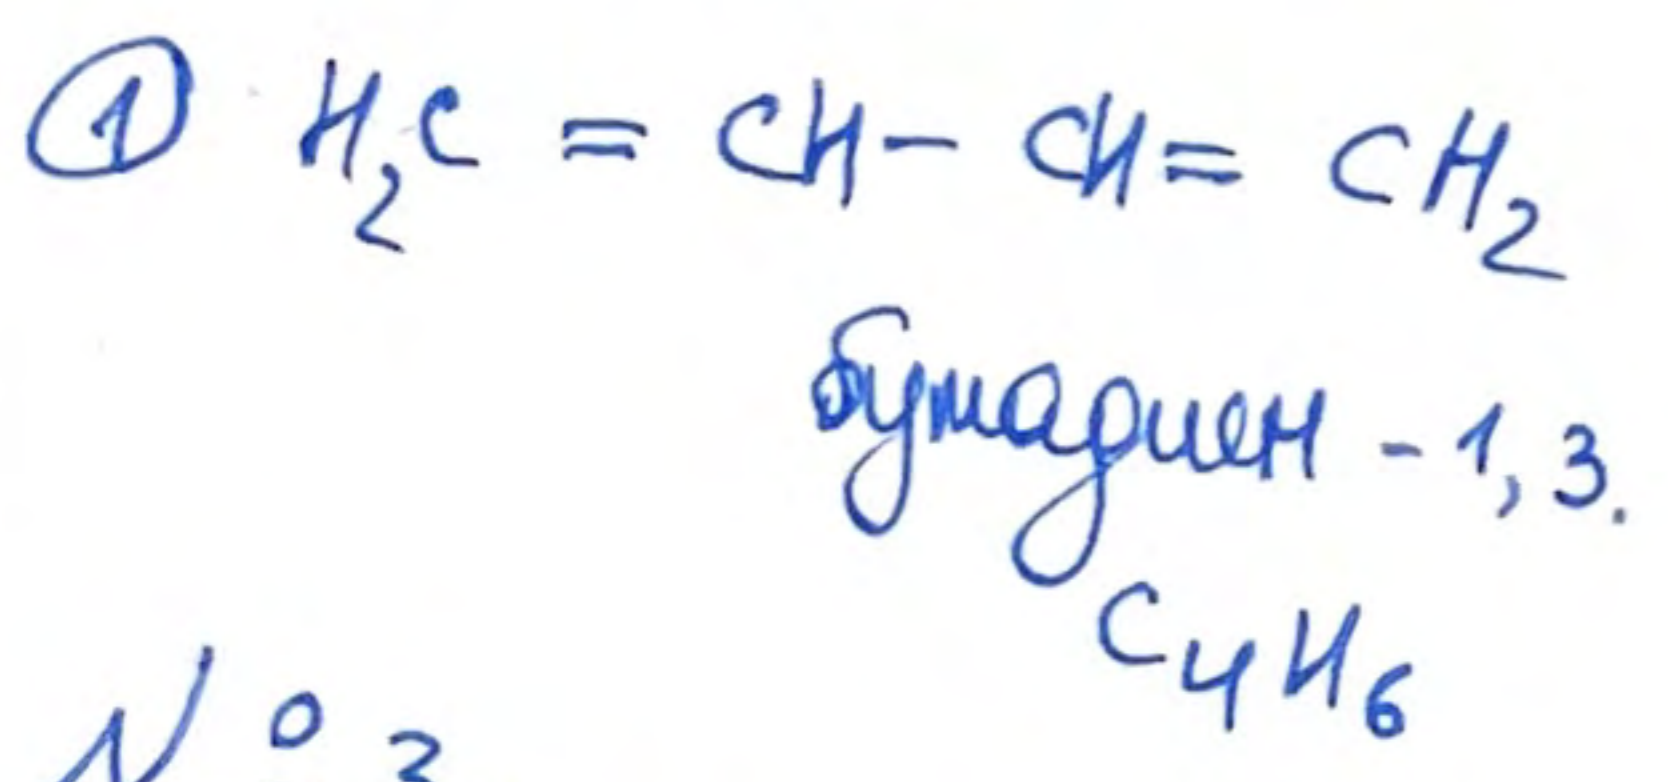 ① H₂C = CH - CH = CH₂
бутадиен - 1,3.
C₄H₆
N° 3